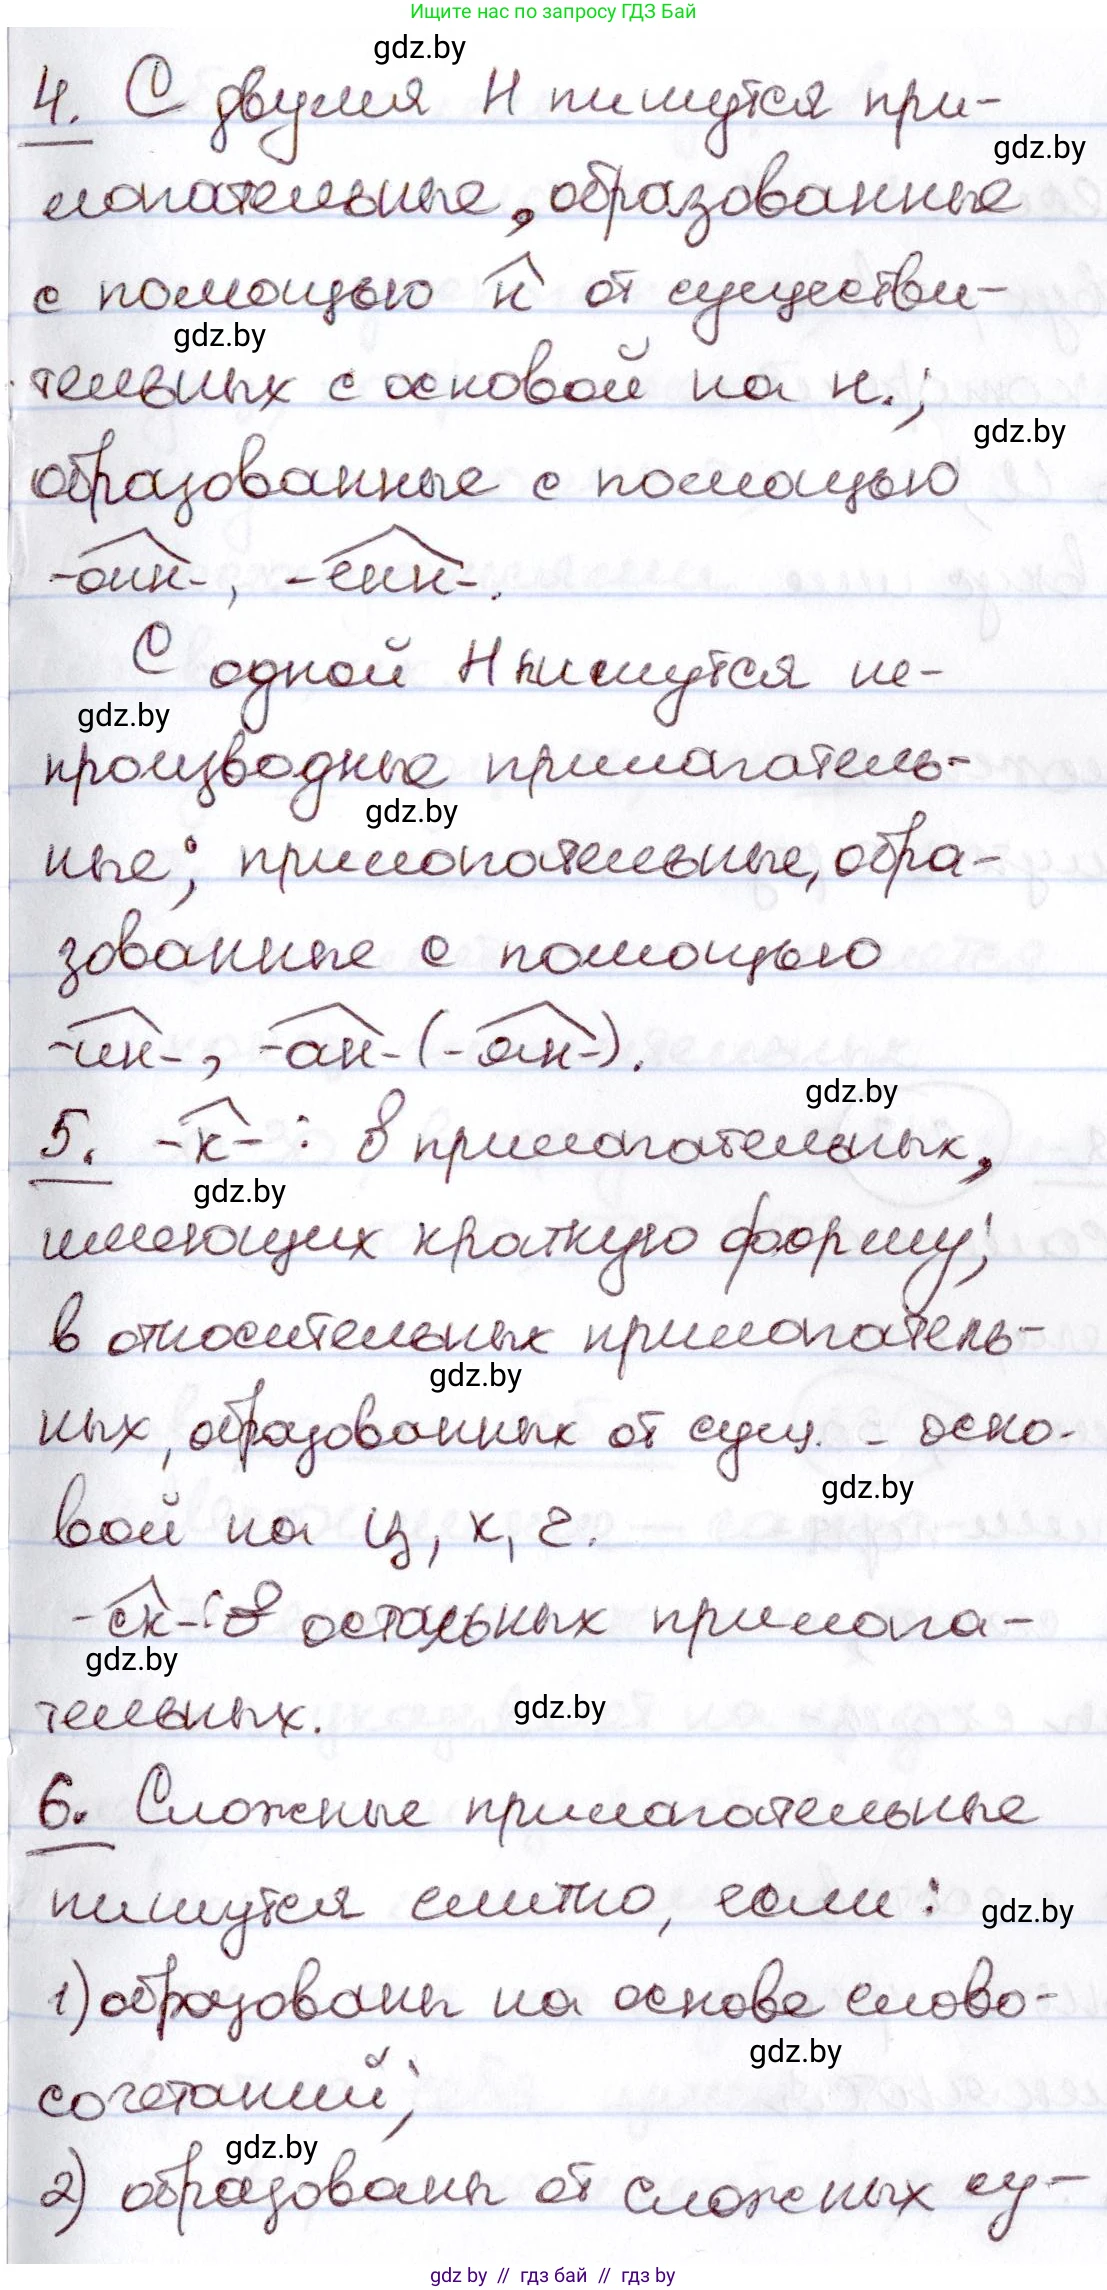 Ищите нас по запросу ГДЗ Бай
gdz.by
4. С двумя Н пишутся при-
gdz.by
лагательные, образованные
с помощью н от существи-
gdz.by
тельных с основой на н.;
gdz.by
образованные с помощью
-онн-, -енн-.
С одной Н пишутся не-
gdz.by
производные прилагатель-
gdz.by
ные; прилагательные, обра-
зованные с помощью
-ин-, -ан- (-ян-).
gdz.by
5. -к-: в прилагательных,
gdz.by
имеющих краткую форму;
в относительных прилагатель-
gdz.by
ных, образованных от сущ. - осно-
gdz.by
вой на ц, к, г.
-ск-: в остальных прилага-
gdz.by
тельных.
gdz.by
6. Сложные прилагательные
пишутся слитно, если:
gdz.by
1) образованы на основе слово-
gdz.by
сочетаний;
gdz.by
2) образованы от сложных су-
gdz by // гдз бай // гдз by